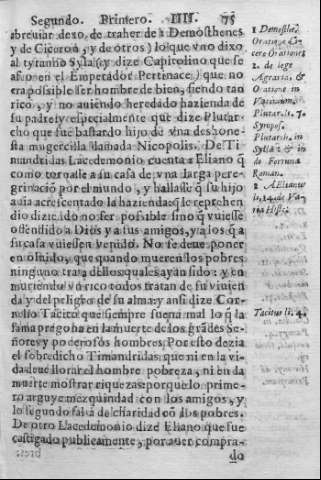 Segundo. Primero. IIII. 75
abreuiar dexo, de traher de a Demosthenes
y de Ciceron, y de otros) lo que vno dixo
al tyranno Sylas (y dize Capitolino que se
en el Emperador Pertinace) que no
era possible ser hombre de bien, siendo tan
rico, y no auiendo heredado hazienda de
su padre (y especialmente que dize Plutar
cho que fue bastardo hijo de vna deshone-
sta mugercilla llamada Nicopolis. De Ti-
mandridas Lacedemonio cuenta Eliano q̃
como tornasse a su casa de vna larga pere-
grinaciõ por el mundo, y hallasse q̃ su hijo
auia acrescentado la hazienda q̃ le reprehen
dio diziẽdo no ser possible sino q̃ vuiesse
offendido a Dios y a sus amigos, y a los q̃ a
su casa vuiessen venido. No se deue poner
en oluido, que quando mueren los pobres
ninguno trata dellos quales ayan sido: y en
muriendo vn rico todos tratan de su viuien
da y del peligro de su alma: y ansi dize Cor-
nelio Tacito que siempre suena mal lo q̃ la
fama pregona en la muerte de los grãdes Se-
ñores y poderosos hombres. Por esto dezia
el sobredicho Timandridas: que ni en la vi-
da deue llorar el hombre pobreza, ni en la
muerte mostrar riquezas: porque lo prime-
ro arguye mezquindad con los amigos, y
lo segundo falta de charidad cõ los pobres.
De otro Lacedemonio dize Eliano que fue
castigado publicamente, por auer compra-
do
1 Demosthe.
Oratione
Cicero Oratione
2. de lege
Agraria, &
Oratione in
Vatinium,
Plutarch. 7.
Sympos.
Plutarch. in
Sylla & in
de Fortuna
Roman.
2 Aelianus
li. 14. de Va-
ria Histo.
Tacitus li. 4.